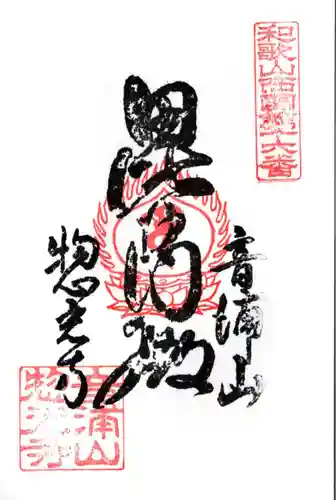 和歌山西國第十六番
音浦山
毘
惣光寺
音浦山
惣光寺